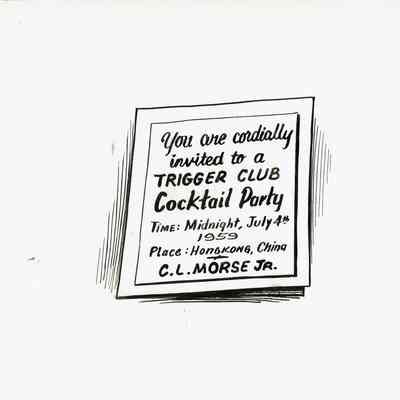 You are cordially
invited to a
TRIGGER CLUB
Cocktail Party
TIME: Midnight, July 4th
1959
Place: HONGKONG, China
C.L. MORSE JR.